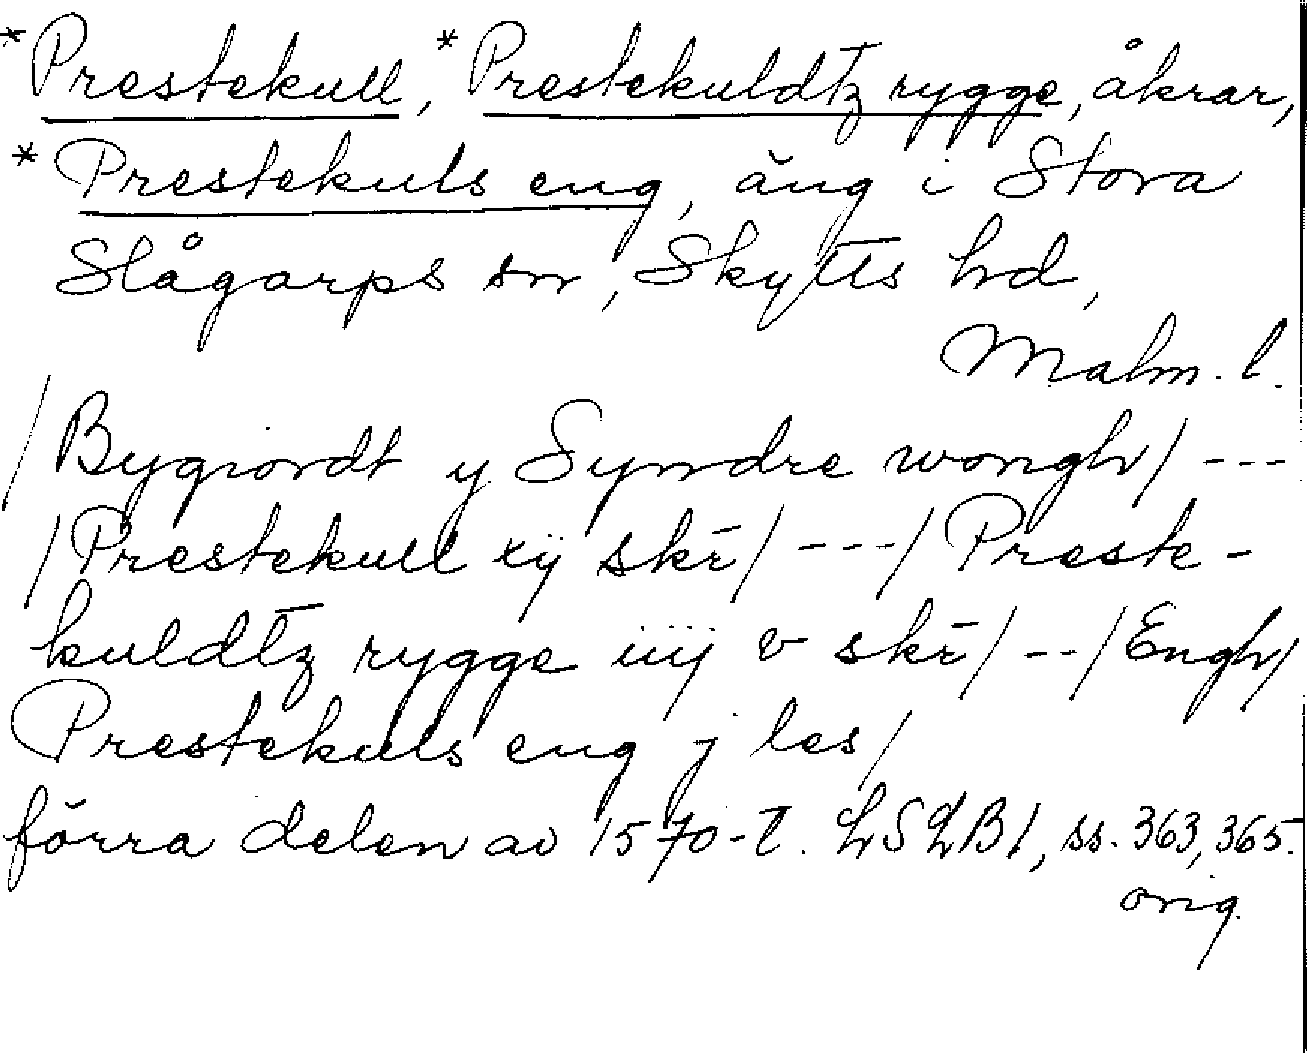 *Prestekull, *Prestekuldtz rygge, åkrar,
*Prestekuls eng, äng i Stora
Slågarps sn, Skytts hd,
Malm. l.
/Bygiordt y Syndre wongh/ ---
/Prestekull xij skr̄/ ---/Preste-
kuldtz rygge iiij v skr̄/ --/Engh/
Prestekuls eng j les/
förra delen av 1570-t. LSLB1, ss. 363, 365.
orig.